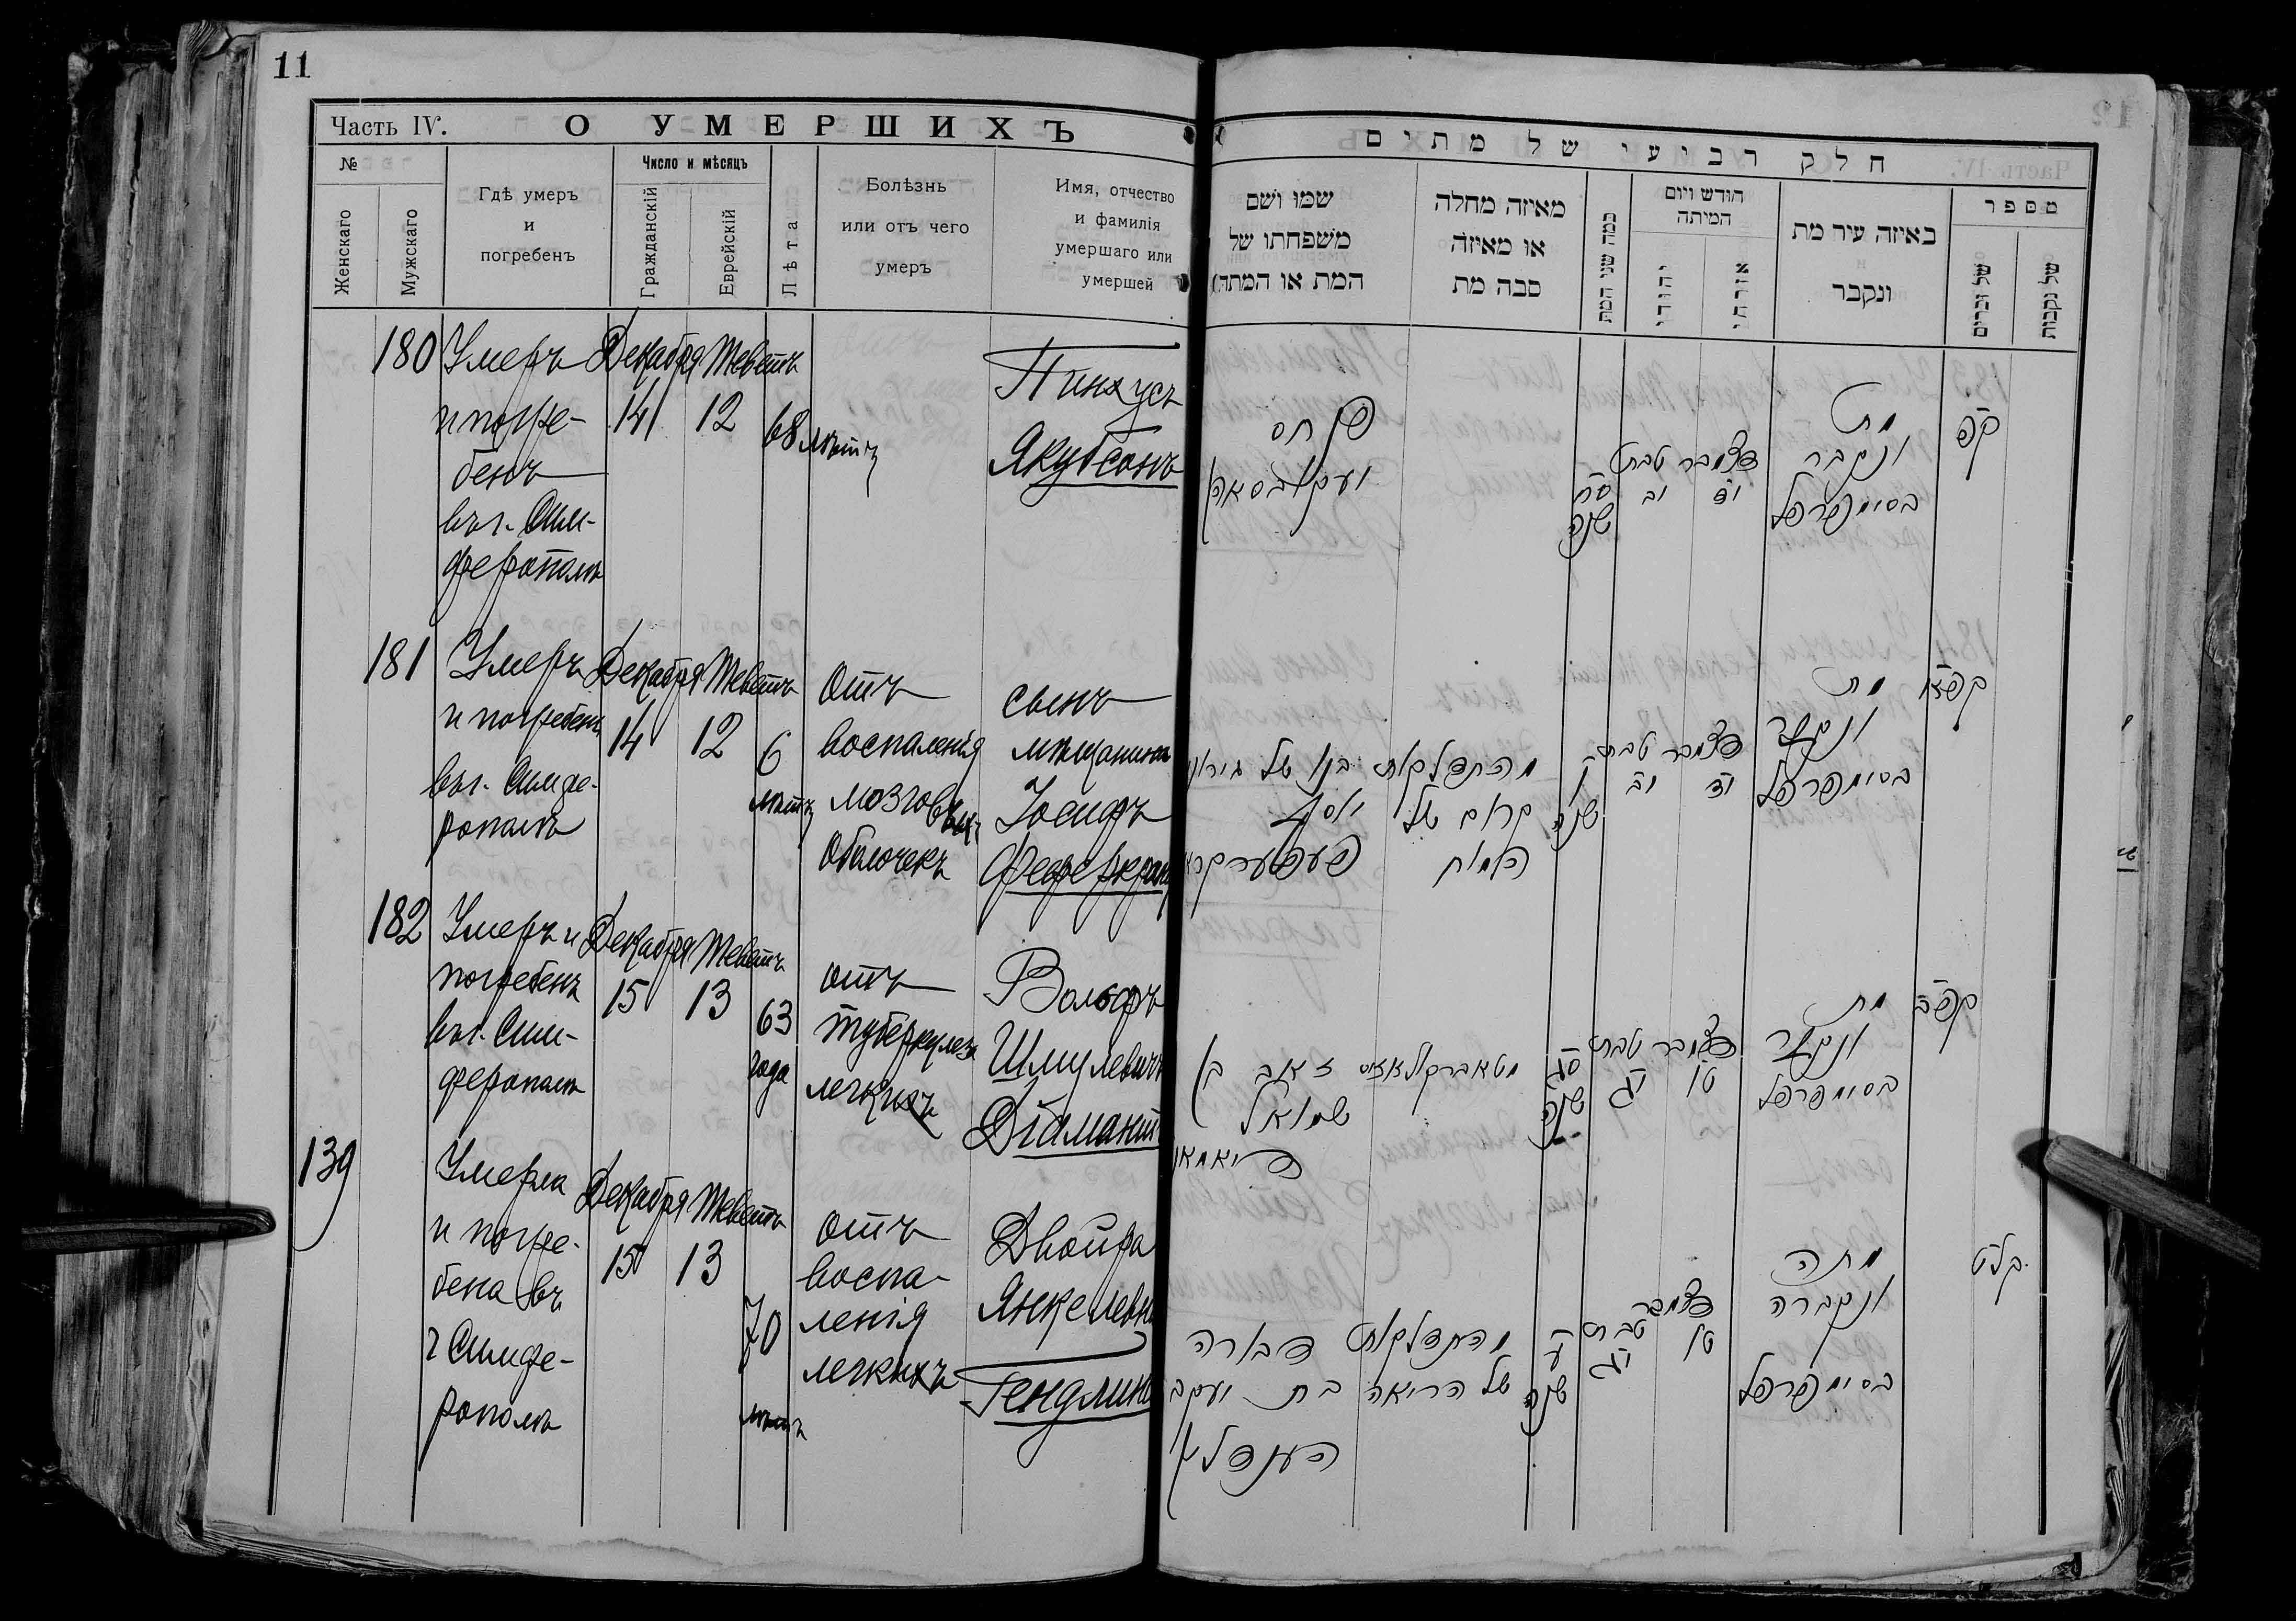 11
Часть IV.
О УМЕРШИХЪ
№
Женскаго
Мужскаго
Гдѣ умеръ
и
погребенъ
Число и мѣсяцъ
Гражданскій
Еврейскій
Лѣта
Болѣзнь
или отъ чего
умеръ
Имя, отчество
и фамилія
умершаго или
умершей
180
Умеръ
и погре-
бенъ
въ г. Сим-
ферополѣ
Декабря
14
Тевета
12
68 лѣтъ
Пинхусъ
Якубсонъ
181
Умеръ
и погребенъ
въ г. Симфе-
рополѣ
Декабря
14
12
6
лѣтъ
Отъ
воспаленія
мозговыхъ
оболочекъ
сынъ
мѣщанина
Іосифъ
182
Умеръ и
погребенъ
въ г. Сим-
ферополѣ
Декабря
15
13
63
года
отъ
туберкулеза
легкихъ
Вольфъ
Шмулевичъ
Діамантъ
139
Умерла
и погре-
бена въ
г Симфе-
рополѣ
Декабря
15
13
70
лѣтъ
отъ
воспа-
ленія
легкихъ
Двойра
Янкелевна
חלק רביעי של מתים
מספר
של נקבות
של זכרים
באיזה עיר מת
ונקבר
חודש ויום
המיתה
מאיזה מחלה
או מאיזה
סבה מת
שמו ושם
משפחתו של
המת או המתה
קפ
מת
ונקבר
בסימפרפל
דצמבר
יד
טבת
יב
סח
שנה
פנחס
יעקובסאהן
קפא
מת
ונקבר
בסימפרפל
דצמבר
יד
טבת
יב
ו
שנה
מהתדלקות
קרום של
המוח
יוסף
קפב
מת
ונקבר
בסימפרפל
דצמבר
טו
טבת
יג
סג
שנה
זאב בן
שמואל
דיאמאנ
קלט
מתה
ונקברה
בסימפרפל
דצמבר
טו
טבת
יג
ע
שנה
מהתדלקות
של הריאה
דבורה
בת יעקב
הענדלין